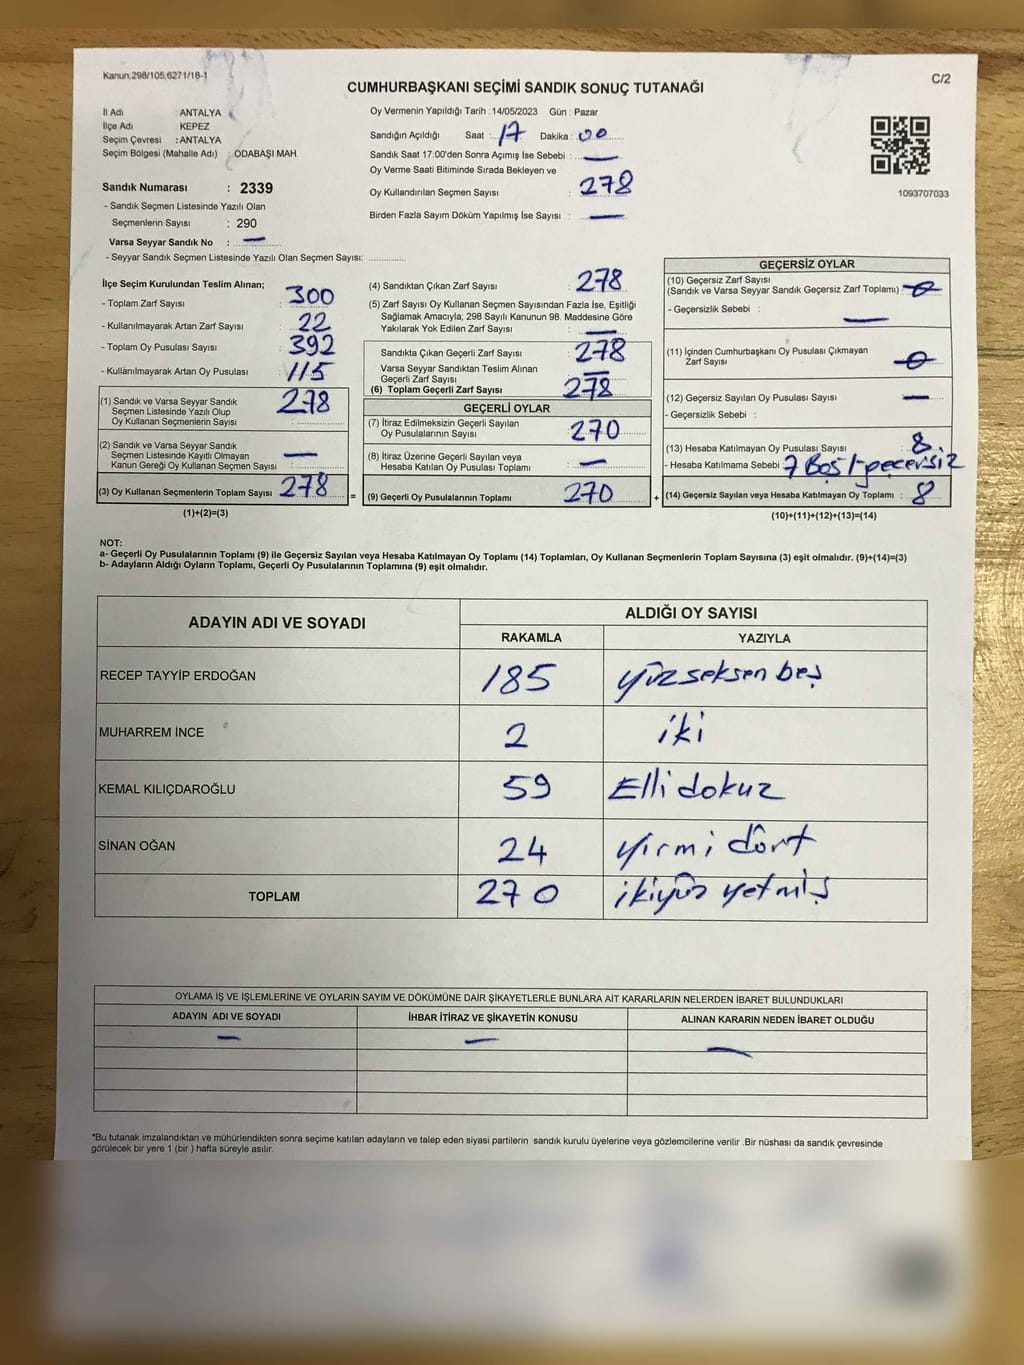 Kanun;298/105;6271/18-1
C/2
CUMHURBAŞKANI SEÇİMİ SANDIK SONUÇ TUTANAĞI
İl Adı : ANTALYA
İlçe Adı : KEPEZ
Seçim Çevresi : ANTALYA
Seçim Bölgesi (Mahalle Adı) : ODABAŞI MAH.
Oy Vermenin Yapıldığı Tarih : 14/05/2023 Gün : Pazar
Sandığın Açıldığı Saat : 17 Dakika : 00
Sandık Saat 17:00'den Sonra Açımış İse Sebebi : —
Oy Verme Saati Bitiminde Sırada Bekleyen ve
Oy Kullandırılan Seçmen Sayısı : 278
Birden Fazla Sayım Döküm Yapılmış İse Sayısı : —
1093707033
Sandık Numarası : 2339
- Sandık Seçmen Listesinde Yazılı Olan
Seçmenlerin Sayısı : 290
Varsa Seyyar Sandık No : —
- Seyyar Sandık Seçmen Listesinde Yazılı Olan Seçmen Sayısı: ..............
İlçe Seçim Kurulundan Teslim Alınan;
- Toplam Zarf Sayısı : 300
- Kullanılmayarak Artan Zarf Sayısı : 22
- Toplam Oy Pusulası Sayısı : 392
- Kullanılmayarak Artan Oy Pusulası : 115
(1) Sandık ve Varsa Seyyar Sandık
Seçmen Listesinde Yazılı Olup
Oy Kullanan Seçmenlerin Sayısı : 278
(2) Sandık ve Varsa Seyyar Sandık
Seçmen Listesinde Kayıtlı Olmayan
Kanun Gereği Oy Kullanan Seçmen Sayısı : —
(3) Oy Kullanan Seçmenlerin Toplam Sayısı : 278
(1)+(2)=(3)
(4) Sandıktan Çıkan Zarf Sayısı : 278
(5) Zarf Sayısı Oy Kullanan Seçmen Sayısından Fazla İse, Eşitliği
Sağlamak Amacıyla; 298 Sayılı Kanunun 98. Maddesine Göre
Yakılarak Yok Edilen Zarf Sayısı : —
Sandıkta Çıkan Geçerli Zarf Sayısı : 278
Varsa Seyyar Sandıktan Teslim Alınan
Geçerli Zarf Sayısı : —
(6) Toplam Geçerli Zarf Sayısı : 278
GEÇERLİ OYLAR
(7) İtiraz Edilmeksizin Geçerli Sayılan
Oy Pusulalarının Sayısı : 270
(8) İtiraz Üzerine Geçerli Sayılan veya
Hesaba Katılan Oy Pusulası Toplamı : —
= (9) Geçerli Oy Pusulalarının Toplamı : 270 +
GEÇERSİZ OYLAR
(10) Geçersiz Zarf Sayısı
(Sandık ve Varsa Seyyar Sandık Geçersiz Zarf Toplamı) : 0
- Geçersizlik Sebebi : —
(11) İçinden Cumhurbaşkanı Oy Pusulası Çıkmayan
Zarf Sayısı : 0
(12) Geçersiz Sayılan Oy Pusulası Sayısı : —
- Geçersizlik Sebebi :
(13) Hesaba Katılmayan Oy Pusulası Sayısı : 8
- Hesaba Katılmama Sebebi : 7 Boş 1-geçersiz
(14) Geçersiz Sayılan veya Hesaba Katılmayan Oy Toplamı : 8
(10)+(11)+(12)+(13)=(14)
NOT:
a- Geçerli Oy Pusulalarının Toplamı (9) ile Geçersiz Sayılan veya Hesaba Katılmayan Oy Toplamı (14) Toplamları, Oy Kullanan Seçmenlerin Toplam Sayısına (3) eşit olmalıdır. (9)+(14)=(3)
b- Adayların Aldığı Oyların Toplamı, Geçerli Oy Pusulalarının Toplamına (9) eşit olmalıdır.
ADAYIN ADI VE SOYADI
ALDIĞI OY SAYISI
RAKAMLA YAZIYLA
RECEP TAYYİP ERDOĞAN 185 yüzseksen beş
MUHARREM İNCE 2 iki
KEMAL KILIÇDAROĞLU 59 Elli dokuz
SİNAN OĞAN 24 yirmi dört
TOPLAM 270 ikiyüz yetmiş
OYLAMA İŞ VE İŞLEMLERİNE VE OYLARIN SAYIM VE DÖKÜMÜNE DAİR ŞİKAYETLERLE BUNLARA AİT KARARLARIN NELERDEN İBARET BULUNDUKLARI
ADAYIN ADI VE SOYADI İHBAR İTİRAZ VE ŞİKAYETİN KONUSU ALINAN KARARIN NEDEN İBARET OLDUĞU
— — —
*Bu tutanak imzalandıktan ve mühürlendikten sonra seçime katılan adayların ve talep eden siyasi partilerin sandık kurulu üyelerine veya gözlemcilerine verilir .Bir nüshası da sandık çevresinde
görülecek bir yere 1 (bir ) hafta süreyle asılır.